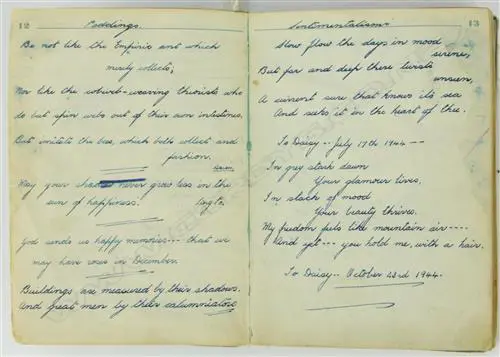 12
Paddings.
Be not like the Empiric ant which
merely collects;
Nor like the cobweb-weaving theorists who
do but spin webs out of their own intestines.
But imitate the bee, which both collect and
fashion.
Bacon
May your shadow never grow less in the
sun of happiness.
God sends us happy memories--- that we
may have roses in December.
Buildings are measured by their shadows.
And great men by their calumniators
13
Sentimentalism
Slow flow the days in mood
serene,
But far and deep there twists
unseen,
A current sure that knows its sea
And seeks it in the heart of thee.
To Daisy -- July 17th 1944 --
In grey stark dawn
Your glamour lives.
In slack of mood
Your beauty thrives.
My freedom feels like mountain air ----
And yet --- you hold me, with a hair.
To Daisy -- October 23rd 1944.